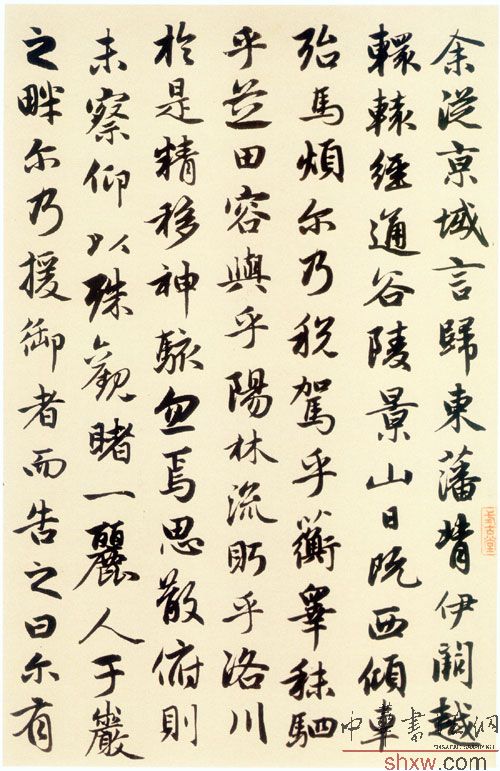 余從京域言歸東藩背伊闕越
轘轅經通谷陵景山日既西傾車
殆馬煩尔乃稅駕乎蘅皋秣駟
乎芝田容與乎陽林流眄乎洛川
於是精移神駭忽焉思散俯則
未察仰以殊觀睹一麗人于巖
之畔尔乃援御者而告之曰尔有
中華書法網
shxw.com